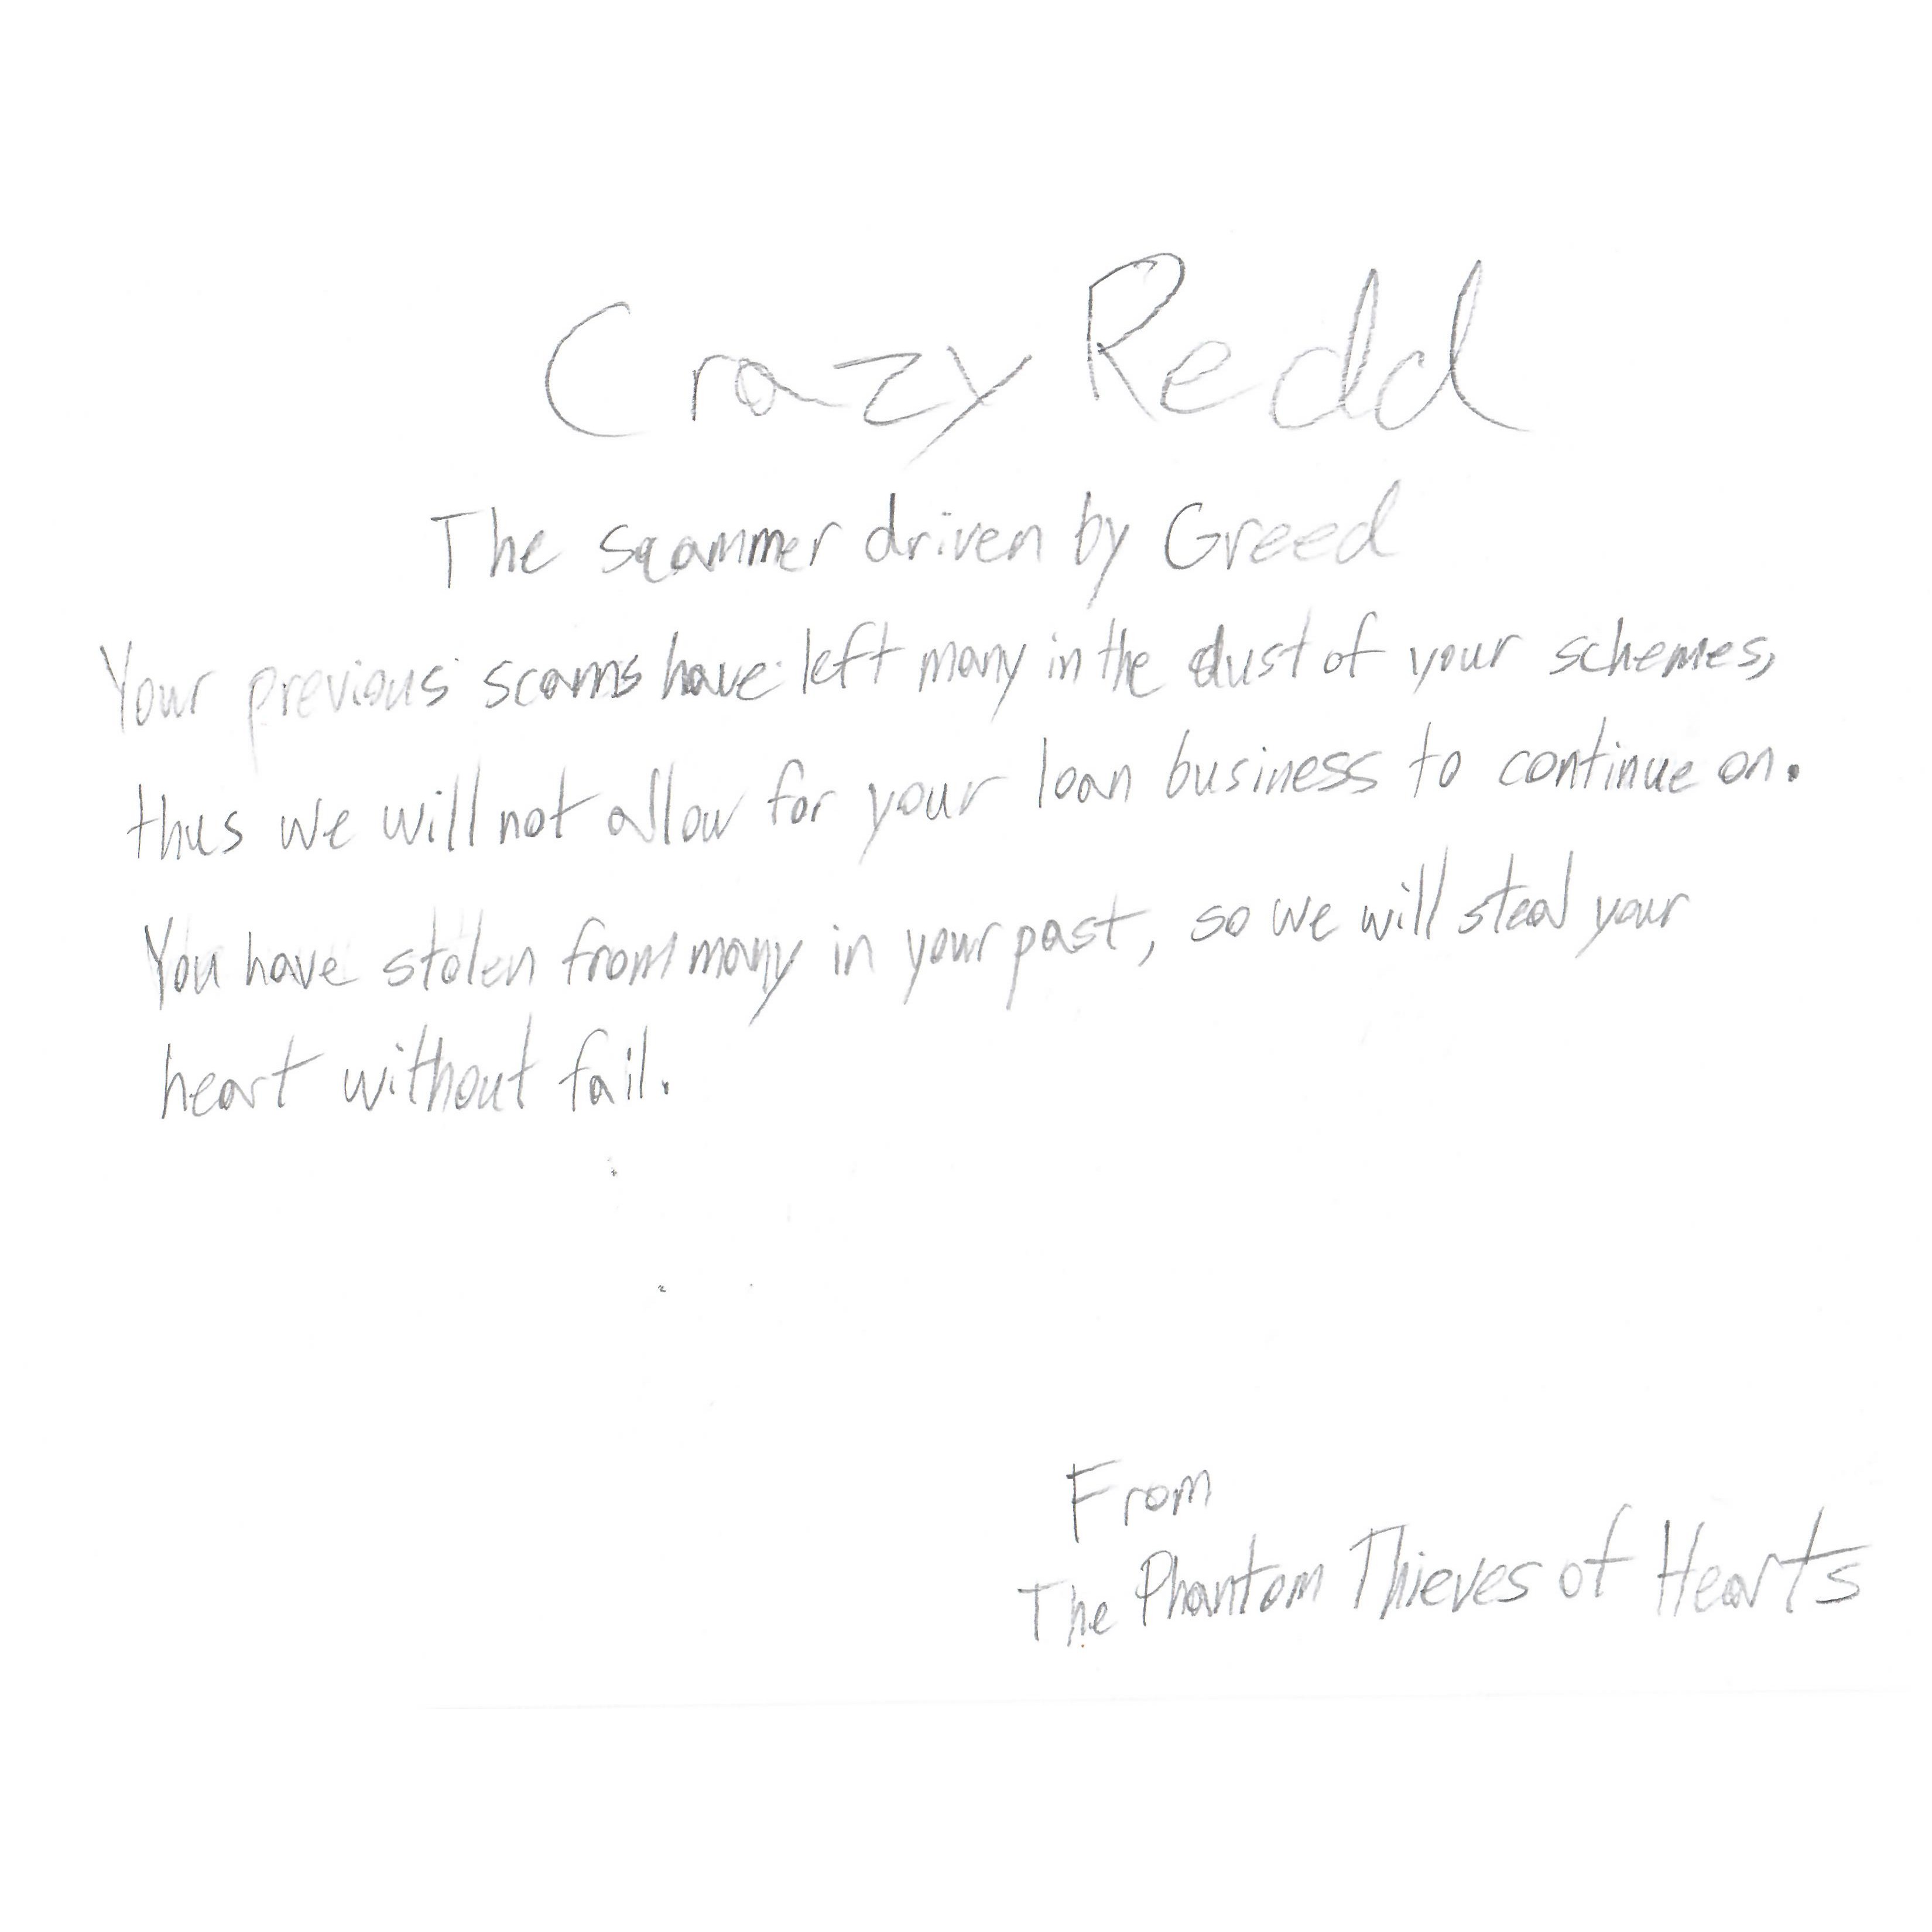 Crazy Redd
The scammer driven by Greed
Your previous scams have left many in the dust of your schemes,
thus we will not allow for your loan business to continue on.
You have stolen from many in your past, so we will steal your
heart without fail.
From
The Phantom Thieves of Hearts